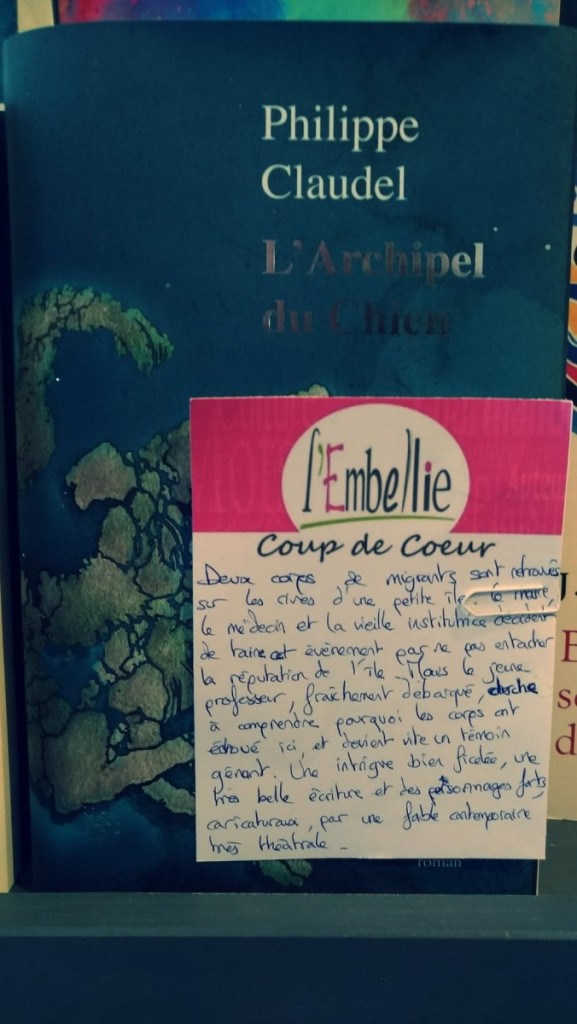 Philippe
Claudel
L'Archipel
du Chien
l'Embellie
Coup de Coeur
Deux corps de migrants sont retrouvés
sur les rives d'une petite île. Le maire,
le médecin et la vieille institutrice décident
de taire cet évènement par ne pas entacher
la réputation de l'île. Mais le jeune
professeur, fraîchement débarqué, cherche
à comprendre pourquoi les corps ont
échoué ici, et devient vite un témoin
gênant. Une intrigue bien ficelée, une
très belle écriture et des personnages forts,
caricaturaux, par une fable contemporaine
très théâtrale -
roman